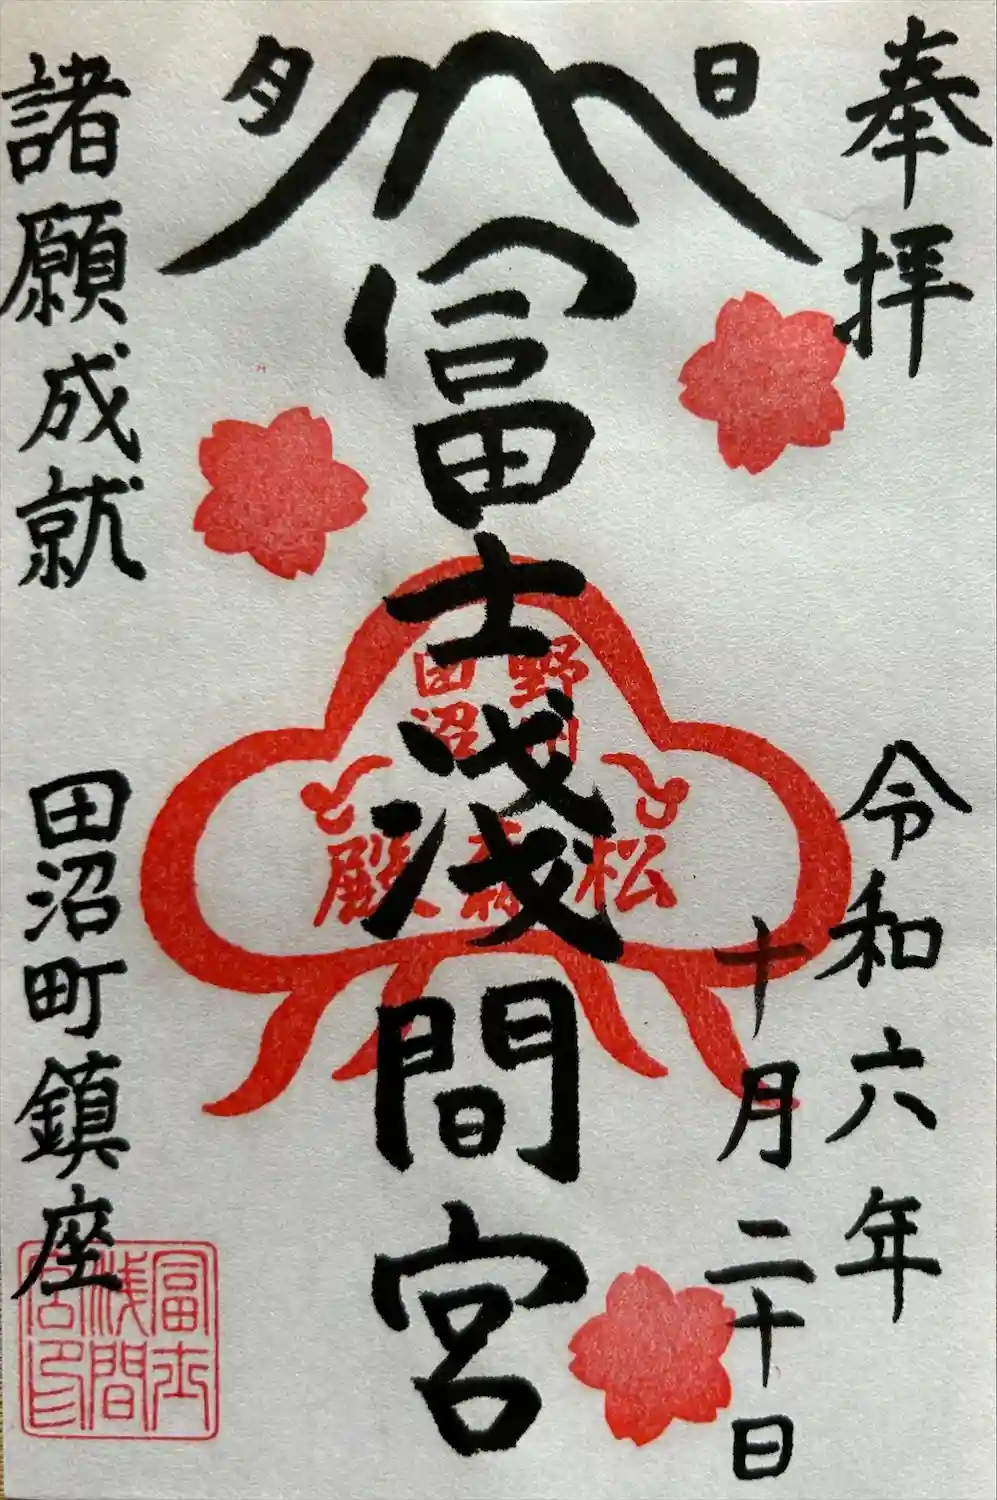 奉拝
令和六年
十月二十日
日
月
富士浅間宮
野州
田沼
松森殿
諸願成就
田沼町鎮座
富士
浅間
宮印